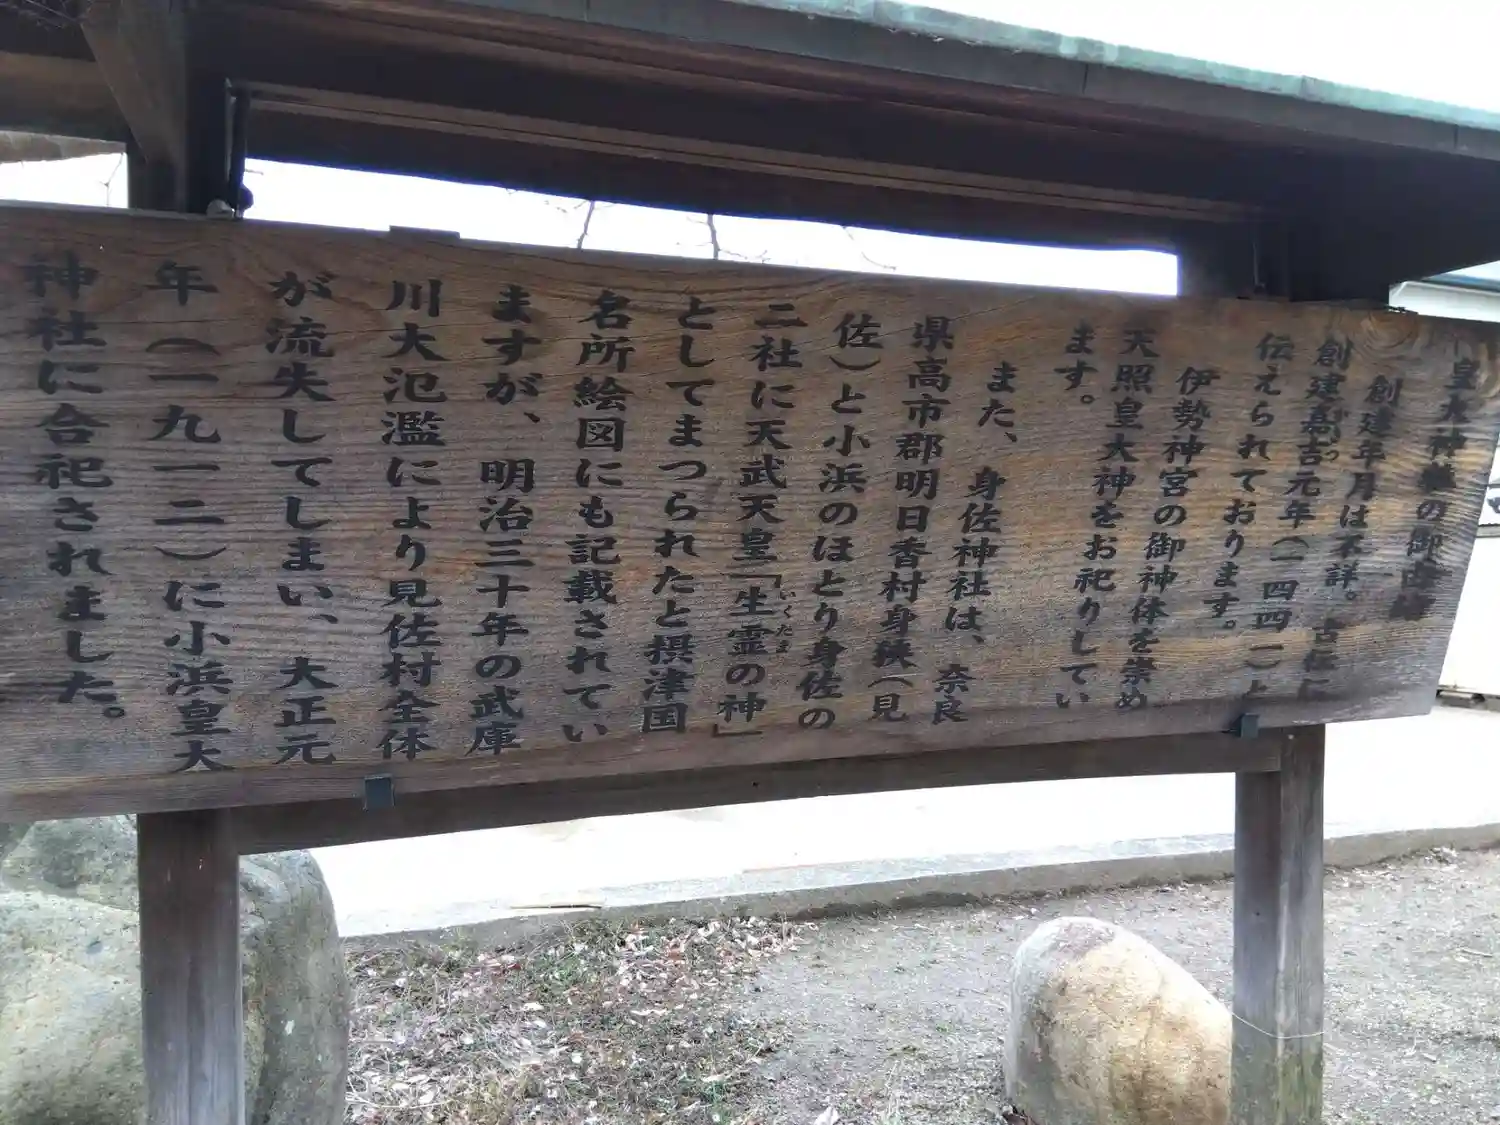 皇大神社の御由緒
創建年月は不詳。古伝に
創建嘉吉元年（一四四一）と
かきつ
伝えられております。
伊勢神宮の御神体を崇め
天照皇大神をお祀りしてい
ます。
また、身佐神社は、奈良
県高市郡明日香村身狭（見
佐）と小浜のほとり身佐の
二社に天武天皇「生霊の神」
いくたま
としてまつられたと摂津国
名所絵図にも記載されてい
ますが、明治三十年の武庫
川大氾濫により見佐村全体
が流失してしまい、大正元
年（一九一二）に小浜皇大
神社に合祀されました。